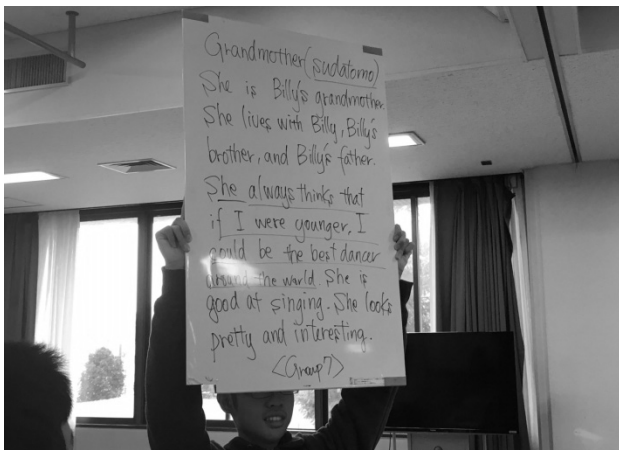 Grandmother (sudatomo)
She is Billy's grandmother.
She lives with Billy, Billy's
brother, and Billy's father.
She always thinks that
if I were younger, I
could be the best dancer
around the world. She is
good at singing. She looks
pretty and interesting.
<Group 7>